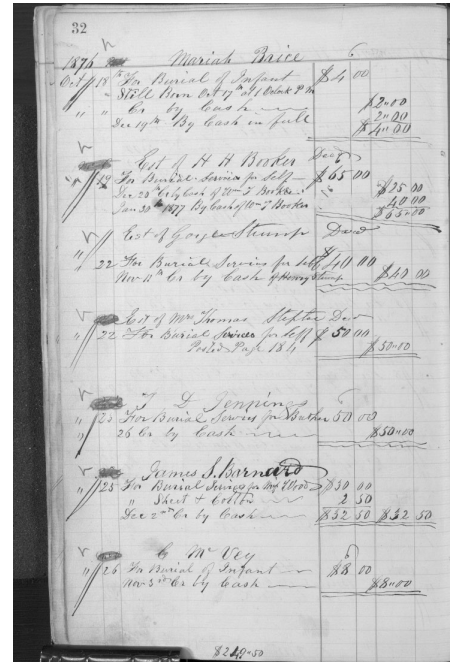 32
1876 Mariah Brice
Oct 18 For Burial of Infant $4 00
Still Born Oct 17th at 1 Oclock P M
" " Cr by Cash $2"00
Dec 19th By Cash in full 2"00
$4"00
Est of H H Booker Decd
" 19 For Burial Services for Self $65 00
Dec 23d Cr by Cash of Wm T Booker $25 00
Jan 30th 1877 By Cash of Wm T Booker 40 00
$65"00
Est of George Stump Decd
" 22 For Burial Services for Self $40 00
Nov Cr by Cash of Henry Stump $40 00
Est of Mrs Thomas Steptoe Decd
" 22 For Burial Services for Self $50 00
Posted Page 184 $50"00
T D Jennings
" 25 For Burial Services for 50 00
26 Cr by Cash $50"00
James S. Barnard
" 25 For Burial Services for Wood $30 00
" Sheet & Cotton 2 50
Dec 2nd Cr by Cash $32 50 $32 50
G McVey
" 26 For Burial of Infant $8 00
Nov 3rd Cr by Cash $8"00
$249"50